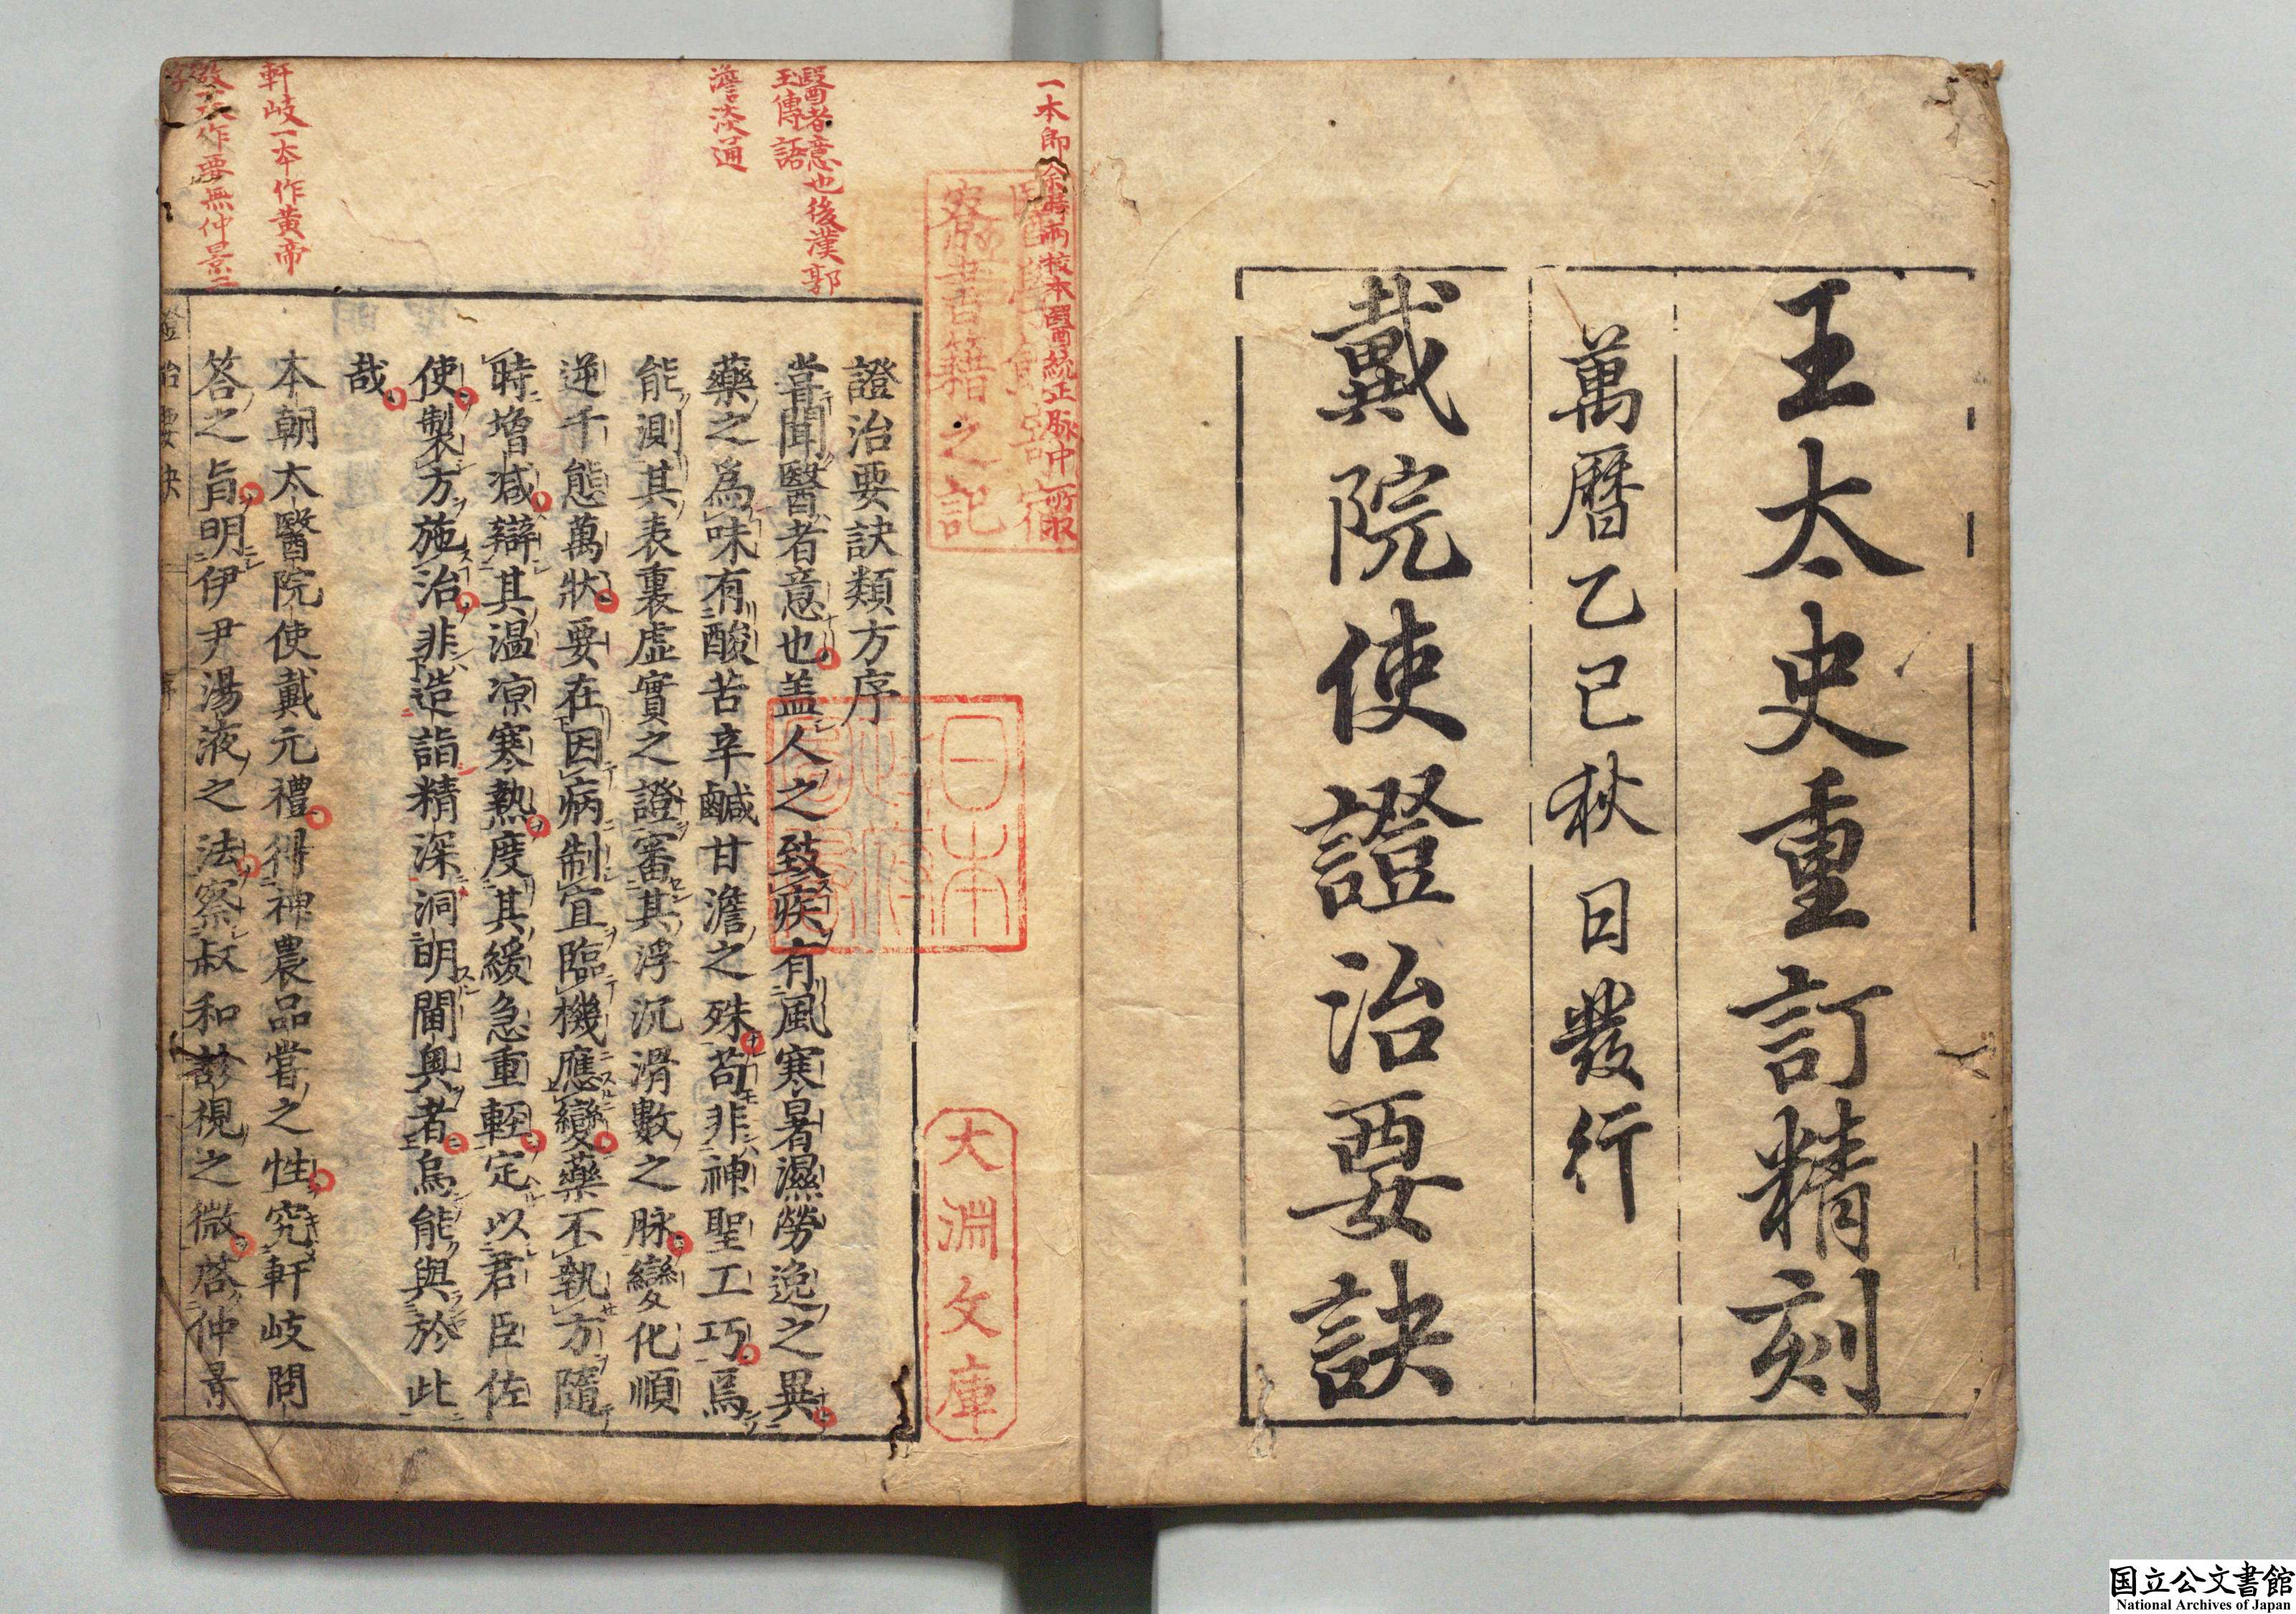 王太史重訂精刻
萬曆乙巳秋日發行
戴院使證治要訣
一本即余蔣兩校本醫統正脉中所收
醫學館書籍之記
大淵文庫
日本
醫者意也後漢郭
玉傳語
澹淡通
軒岐一本作黃帝
作要無仲景二
證治要訣類方序
嘗聞醫者意也盖人之致疾有風寒暑濕勞逸之異
藥之爲味有酸苦辛鹹甘澹之殊苟非神聖工巧焉
能測其表裏虛實之證審其浮沉滑數之脉變化順
逆千態萬狀要在因病制宜臨機應變藥不執方隨
時增減辯其温凉寒熱度其緩急重輕定以君臣佐
使製方施治非造詣精深洞明閫奥者烏能與於此
哉
本朝太醫院使戴元禮得神農品嘗之性究軒岐問
答之旨明伊尹湯液之法察叔和診視之微啓仲景
證治要訣
序
国立公文書館
National Archives of Japan